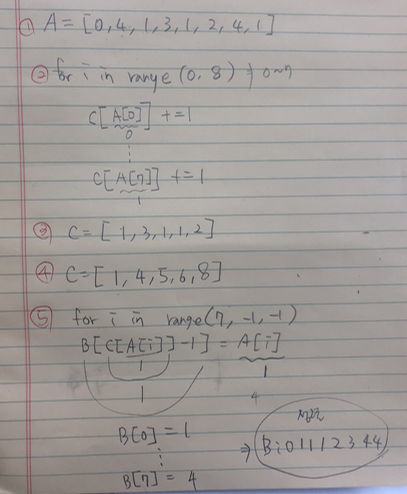 ① A = [0,4,1,3,1,2,4,1]
② for i in range (0, 8) → 0~7
C[A[0]] += 1
0
⋮
C[A[7]] += 1
1
③ C = [1,3,1,1,2]
④ C = [1,4,5,6,8]
⑤ for i in range(7, -1, -1)
B[C[A[i]]-1] = A[i]
1 1
1 4
B[0] = 1
⋮
B[7] = 4
⇒ B: 0 1 1 1 2 3 4 4